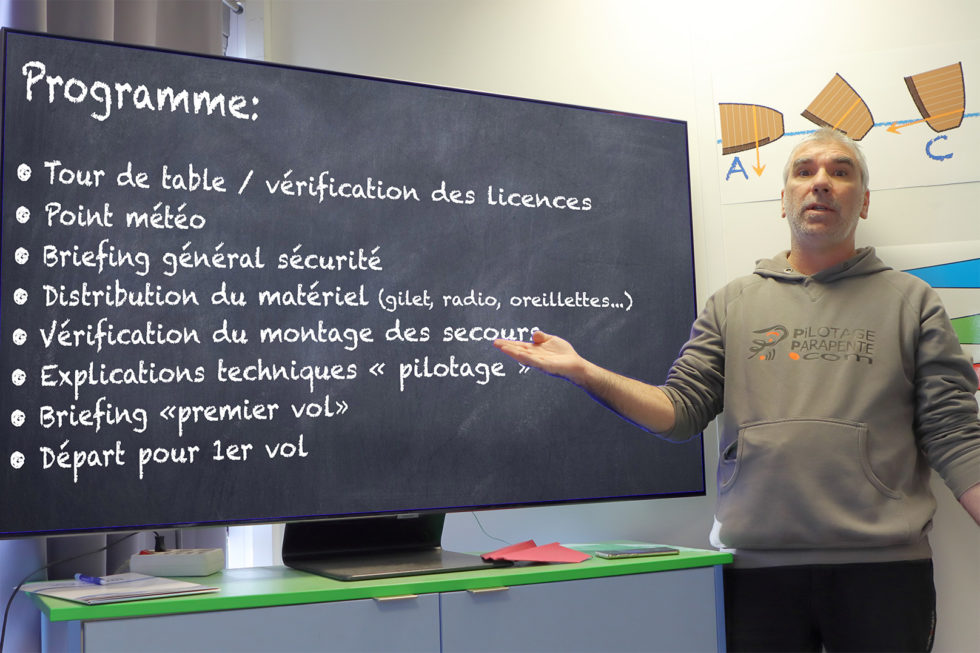 Programme:
• Tour de table / vérification des licences
• Point météo
• Briefing général sécurité
• Distribution du matériel (gilet, radio, oreillettes...)
• Vérification du montage des secours
• Explications techniques « pilotage »
• Briefing «premier vol»
• Départ pour 1er vol
A
C
PiLOTAGE
PARAPENTE
.com